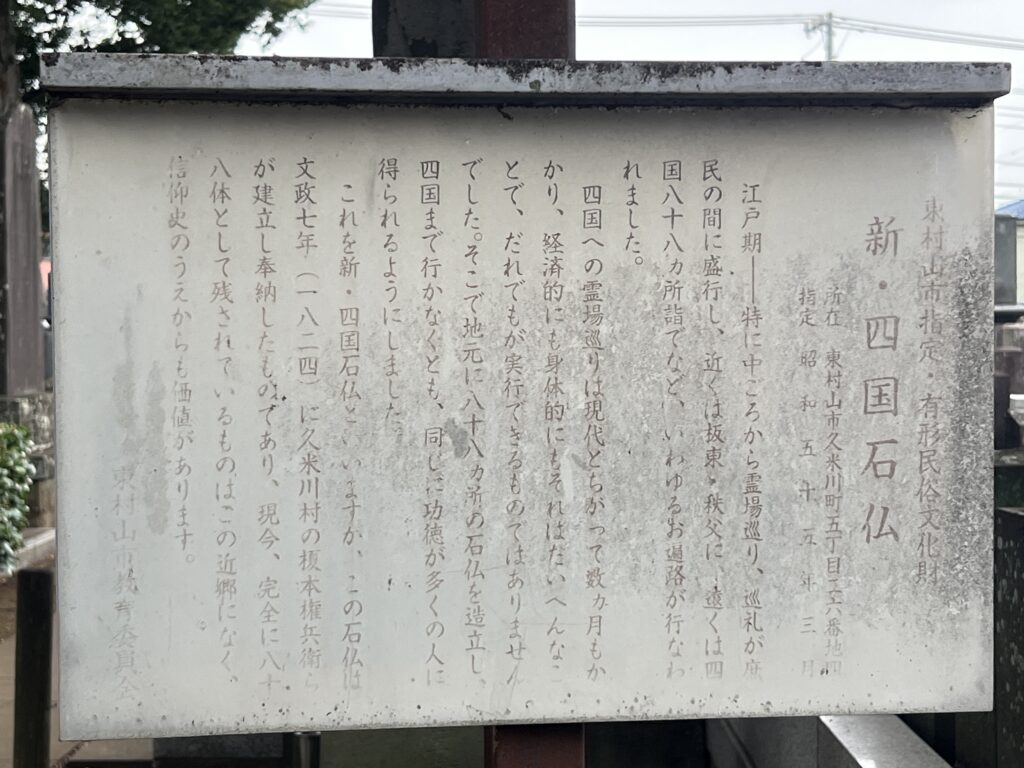 東村山市指定・有形民俗文化財
新・四国石仏
所在 東村山市久米川町五丁目 番地四
指定 昭和五十五年三月
江戸期――特に中ごろから霊場巡り、巡礼が庶
民の間に盛行し、近くは坂東・秩父に、遠くは四
国八十八ヵ所詣でなど、いわゆるお遍路が行なわ
れました。
四国への霊場巡りは現代とちがって数ヵ月もか
かり、経済的にも身体的にもそれはたいへんなこ
とで、だれでもが実行できるものではありません
でした。そこで地元に八十八ヵ所の石仏を造立し、
四国まで行かなくとも、同じに功徳が多くの人に
得られるようにしました。
これを新・四国石仏といいますが、この石仏は
文政七年（一八二四）に久米川村の榎本権兵衛ら
が建立し奉納したものであり、現今、完全に八十
八体として残されているものはこの近郷になく、
信仰史のうえからも価値があります。
東村山市教育委員会